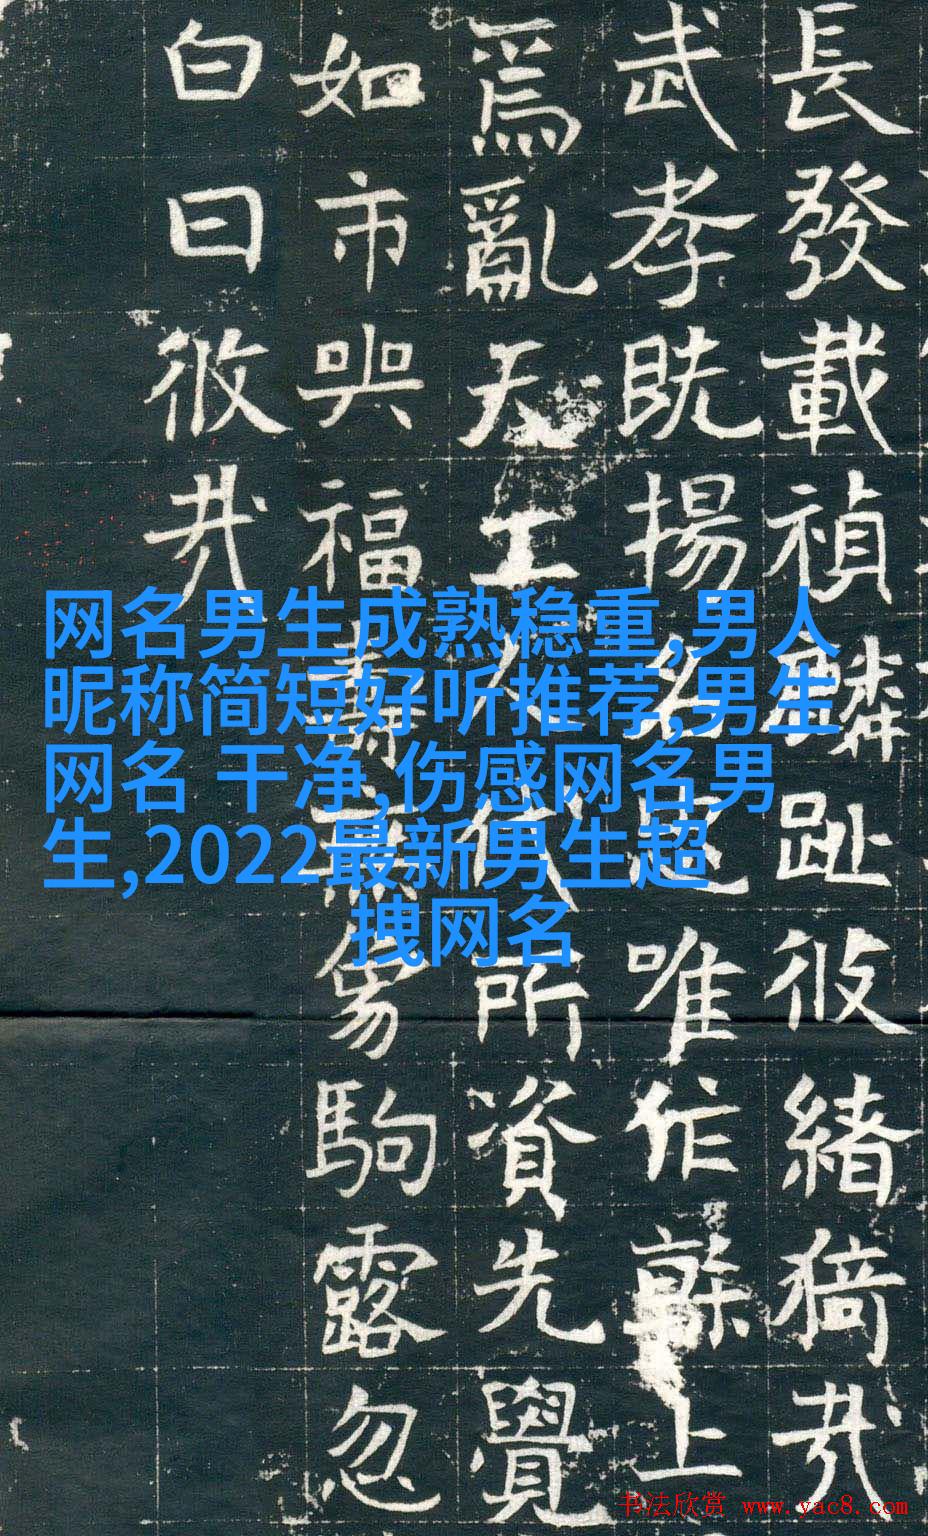 長發載禎鱗趾彼緒猗哉
武孝既揚名唯作幹上
爲亂天工人代所資先覺
如市與福壽駒露忽
白日攸哉
网名男生成熟稳重,男人
昵称简短好听推荐,男生
网名 干净,伤感网名男
生,2022最新男生超
拽网名
书法欣赏 www.yac8.com